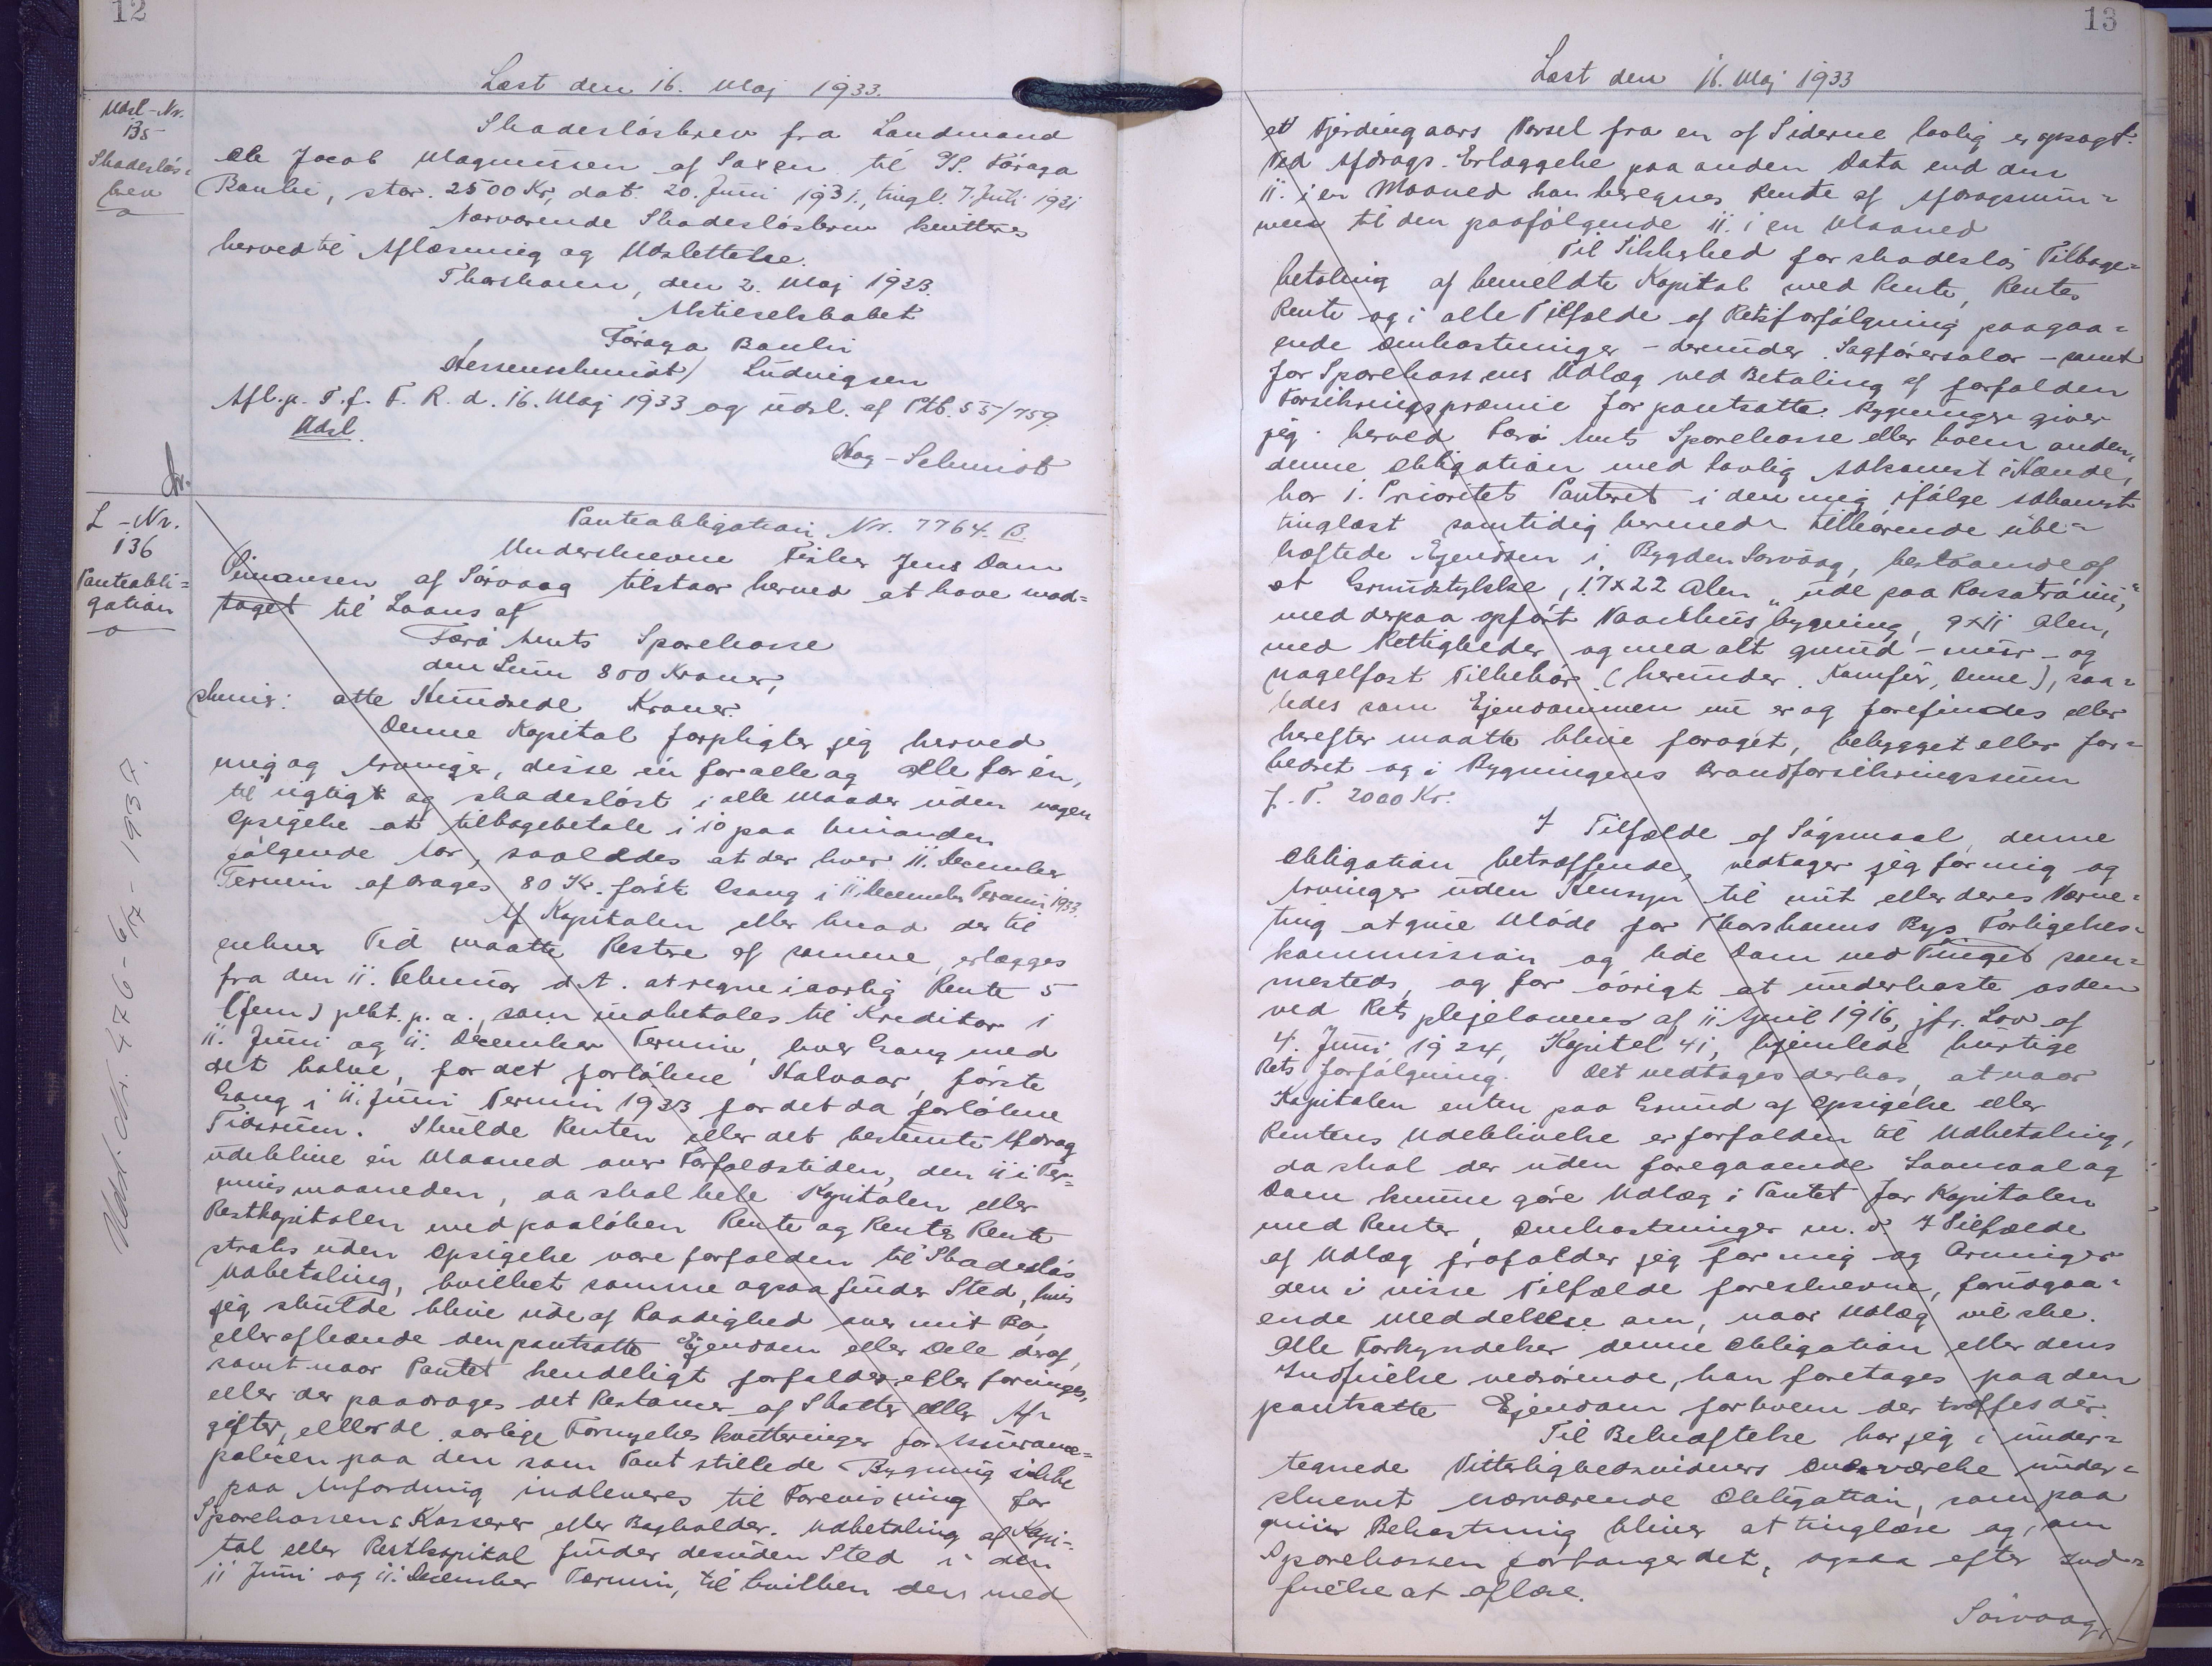 12
Læst den 16. Maj 1933.
Udsl-Nr.
135
Skadesløs-
brev
Skadesløsbrev fra Landmand
Ole Jacob Magnussen af Saxen til P/F. Føroya
Banki, stor. 2500 Kr, dat. 20. Juni 1931., tingl. 7. Juli 1931
Nærværende Skadesløsbrev kvitteres
herved til Aflæsning og Udslettelse.
Thorshavn, den 2. Maj 1933.
Aktieselskabet
Føroya Banki
Hessenschmidt/ Ludvigsen
Afl. p. T. f. F. R. d. 16. Maj 1933 og udsl. af Ptb. 55/759.
Udsl.
Hag-Schmidt
L-Nr.
136
Panteobli=
gation
Panteobligation Nr. 7764. B.
Underskrevne Fisker Jens Dam
Simonsen af Sørvaag tilstaar herved at have mod=
taget til Laans af
Færø Amts Sparekasse
den Sum 800 Kroner,
skriver: otte Hundrede Kroner.
Denne Kapital forpligter jeg herved
mig og Arvinger, disse én for alle og alle for én,
til rigtigt og skadesløst i alle Maader uden nogen
Opsigelse at tilbagebetale i 10 paa hinanden
følgende Aar, saaledes at der hver 11. December
Termin afdrages 80 Kr. første Gang i 11. December Termin 1933.
Af Kapitalen eller hvad der til
enhver Tid maatte Restere af samme, erlægges
fra den 11. Februar d. A. at regne i aarlig Rente 5
(fem) pCt. p. a., som indbetales til Kreditor i
11. Juni og 11. December Termin, hver Gang med
det halve, for det forløbne Halvaar, første
Gang i 11. Juni Termin 1933 for det da forløbne
Tidsrum. Skulde Renten eller det bestemte Afdrag
udeblive én Maaned over Forfaldstiden, den 11 i Ter=
minsmaaneden, da skal hele Kapitalen eller
Restkapitalen med paaløben Rente og Rentes Rente
straks uden Opsigelse være forfalden til Skadesløs
Udbetaling, hvilket samme ogsaa finder Sted, hvis
jeg skulde blive ude af Raadighed over mit Bo,
eller afhænde den pantsatte Ejendom eller Dele deraf,
samt naar Pantet kendeligt forfalder eller forringes,
eller der paadrages det Restancer af Skatter eller Af=
gifter, eller de aarlige Fornyelses kvitteringer for Assurance=
policen paa den som Pant stillede Bygning ikke
paa Anfordring indleveres til Forevisning for
Sparekassens Kasserer eller Bogholder. Udbetaling af Kapi=
tal eller Restkapital finder desuden Sted i den
11 Juni og 11. December Termin, til hvilken den med
Udd. Nr. 476 - 6/7 - 1937.
13
Læst den 16. Maj 1933
et Fjerdingaars Varsel fra en af Siderne lovlig er opsagt.
Ved Afdrags-Erlæggelse paa anden Data end den
11. i en Maaned kan beregnes Rente af Afdragssum=
men til den paafølgende 11. i en Maaned
Til Sikkerhed for skadesløs Tilbage=
betaling af bemeldte Kapital med Rente, Rentes
Rente og i alle Tilfælde af Retsforfølgning paagaa=
ende Omkostninger - derunder Sagførersalær - samt
for Sparekassens Udlæg ved Betaling af forfalden
Forsikringspræmie for pantsatte Bygninger giver
jeg herved Færø Amts Sparekasse eller hvem anden,
denne Obligation med lovlig Adkomst i Hænde,
har 1. Prioritet Panteret i den mig ifølge Adkomst
tinglæst samtidig hermed tilhørende ube=
hæftede Ejendom i Bygden Sørvaag, bestaaende af
et Grundstykke, 17x22 Alen „ude paa
med derpaa opført Vaaningshusbygning, 9x11 Alen,
med Rettigheder og med alt grund- mur- og
nagelfast Tilbehør (herunder Komfur, Ovne), saa=
ledes som Ejendommen nu er og forefindes eller
herefter maatte blive forøget, bebygget eller for=
bedret og i Bygningens Brandforsikringssum
f. T. 2000 Kr.
I Tilfælde af Søgsmaal denne
Obligation betræffende, vedtager jeg for mig og
Arvinger uden Hensyn til mit eller deres Værne=
ting at give Møde for Thorshavns Bys Forligelses=
kommission og lide Dom ved Tinget sam=
mesteds, og for øvrigt at underkaste os den
ved Retsplejelovens af 11 April 1916, jfr. Lov af
4. Juni 1924, Kapitel 41, hjemlede hurtige
Retsforfølgning. Det vedtages derhos, at naar
Kapitalen enten paa Grund af Opsigelse eller
Rentens Udeblivelse er forfalden til Udbetaling,
da skal der uden foregaaende Lovmaal og
Dom kunne gøre Udlæg i Pantet for Kapitalen
med Renter, Omkostninger m. v. I Tilfælde
af Udlæg frafalder jeg for mig og Arvinger
den i visse Tilfælde foreskrevne, forudgaa=
ende Meddelelse om, naar Udlæg vil ske.
Alle Forkyndelser denne Obligation eller dens
Indfrielse vedrørende, kan foretages paa den
pantsatte Ejendom for hvem der træffes dér.
Til Bekræftelse har jeg i under=
tegnede Vitterlighedsvidners Overværelse under=
skrevet nærværende Obligation, som paa
min Bekostning bliver at tinglæse og, om
Sparekassen forlanger det, ogsaa efter Ind=
frielse at aflæse.
Sørvaag,